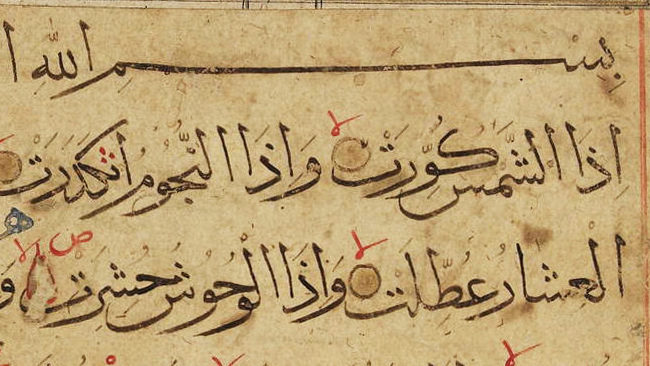 بِسْمِ اللّٰهِ ا
اِذَا الشَّمْسُ كُوِّرَتْ لا وَاِذَا النُّجُومُ انْكَدَرَتْ
الْعِشَارُ عُطِّلَتْ لا وَاِذَا الْوُحُوشُ حُشِرَتْ لا ص و